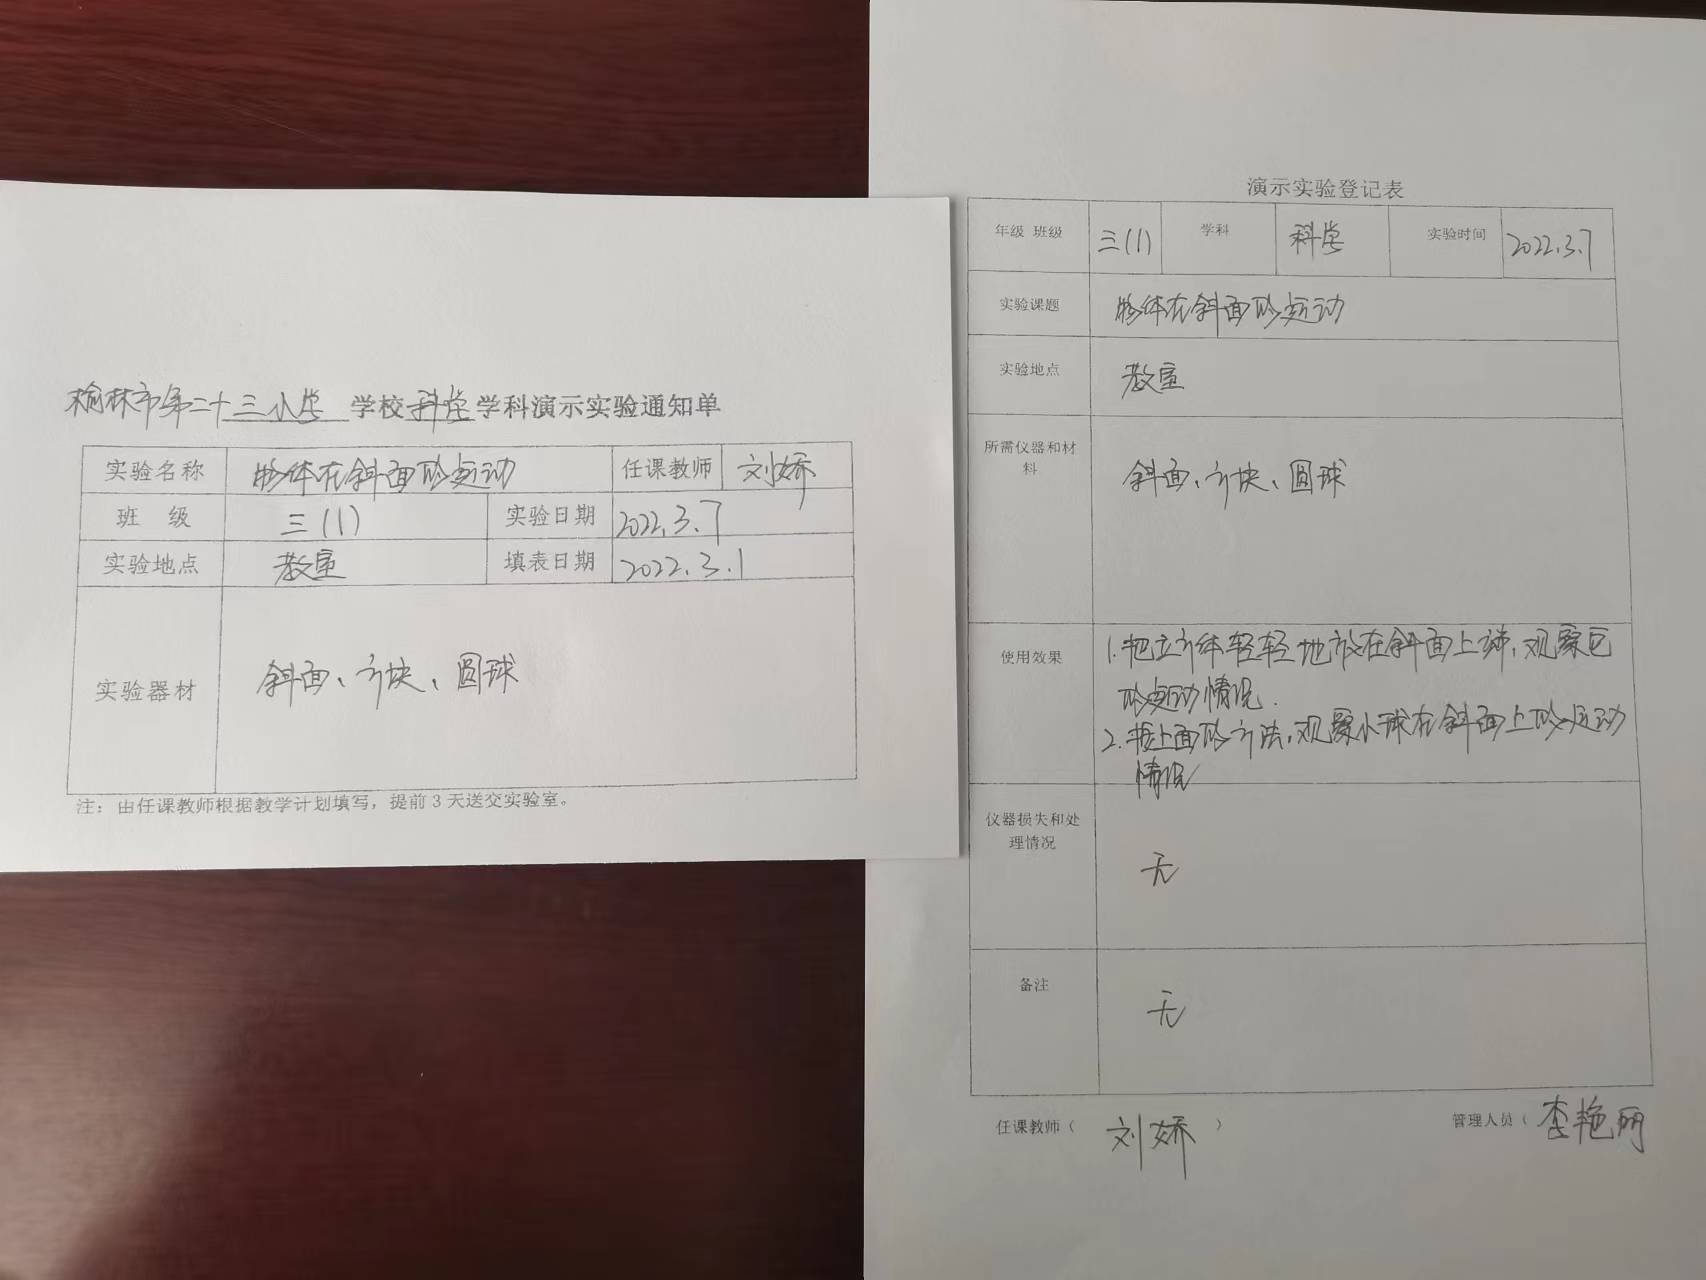 榆林市第二十三小学 学校科学学科演示实验通知单
实验名称 物体在斜面的运动 任课教师 刘娇
班 级 三(1) 实验日期 2022.3.7
实验地点 教室 填表日期 2022.3.1
实验器材 斜面、方块、圆球
注：由任课教师根据教学计划填写，提前3天送交实验室。
演示实验登记表
年级 班级 三(1) 学科 科学 实验时间 2022.3.7
实验课题 物体在斜面的运动
实验地点 教室
所需仪器和材
料
斜面、方块、圆球
使用效果
1.把立方体轻轻地放在斜面上端，观察它
的运动情况.
2.按上面的方法，观察小球在斜面上的运动
情况
仪器损失和处
理情况
无
备注
无
任课教师（ 刘娇 ） 管理人员（ 李艳丽